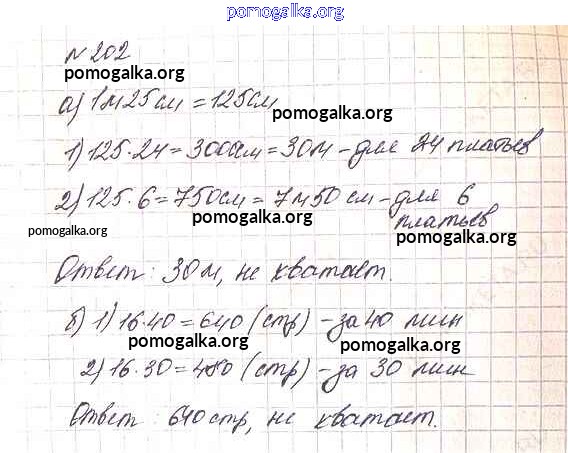 pomogalka.org
№ 202
pomogalka.org
а) 1м 25 см = 125см
pomogalka.org
1) 125·24 = 3000см = 30м – для 24 платьев
pomogalka.org
2) 125·6 = 750см = 7м 50 см – для 6
pomogalka.org
платьев
pomogalka.org
pomogalka.org
Ответ: 30 м, не хватает.
б) 1) 16·40 = 640 (стр) – за 40 мин
pomogalka.org
pomogalka.org
2) 16·30 = 480 (стр) – за 30 мин
Ответ: 640 стр, не хватает.